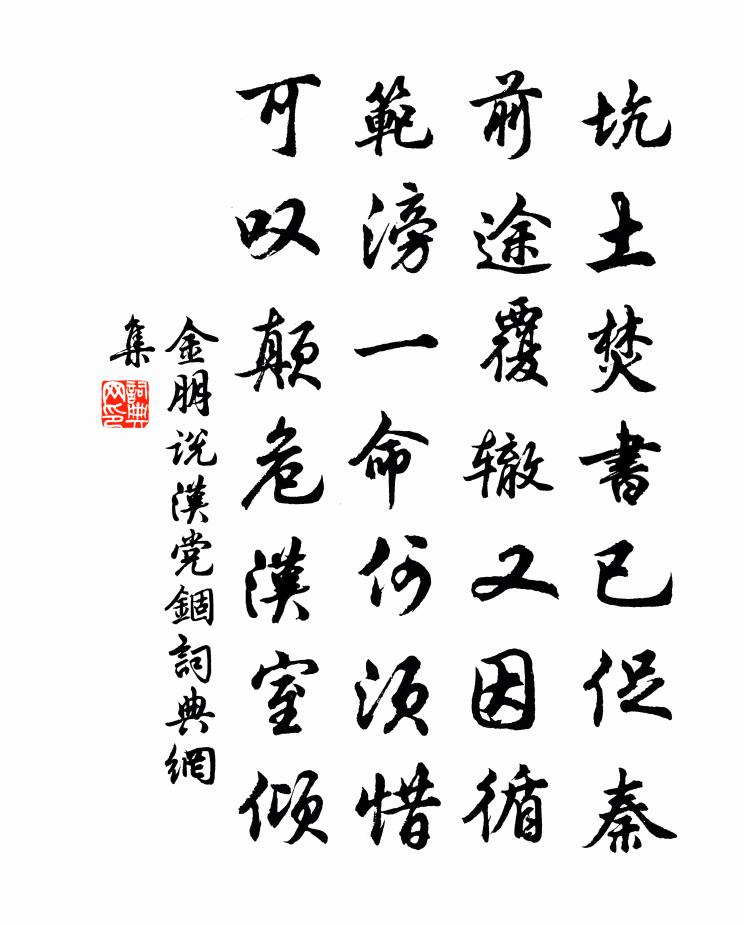 坑土焚書已促秦
前途覆辙又因循
範滂一命何須惜
可叹颠危漢室倾
金朋说漢党錮詞典網
集
詞典网印